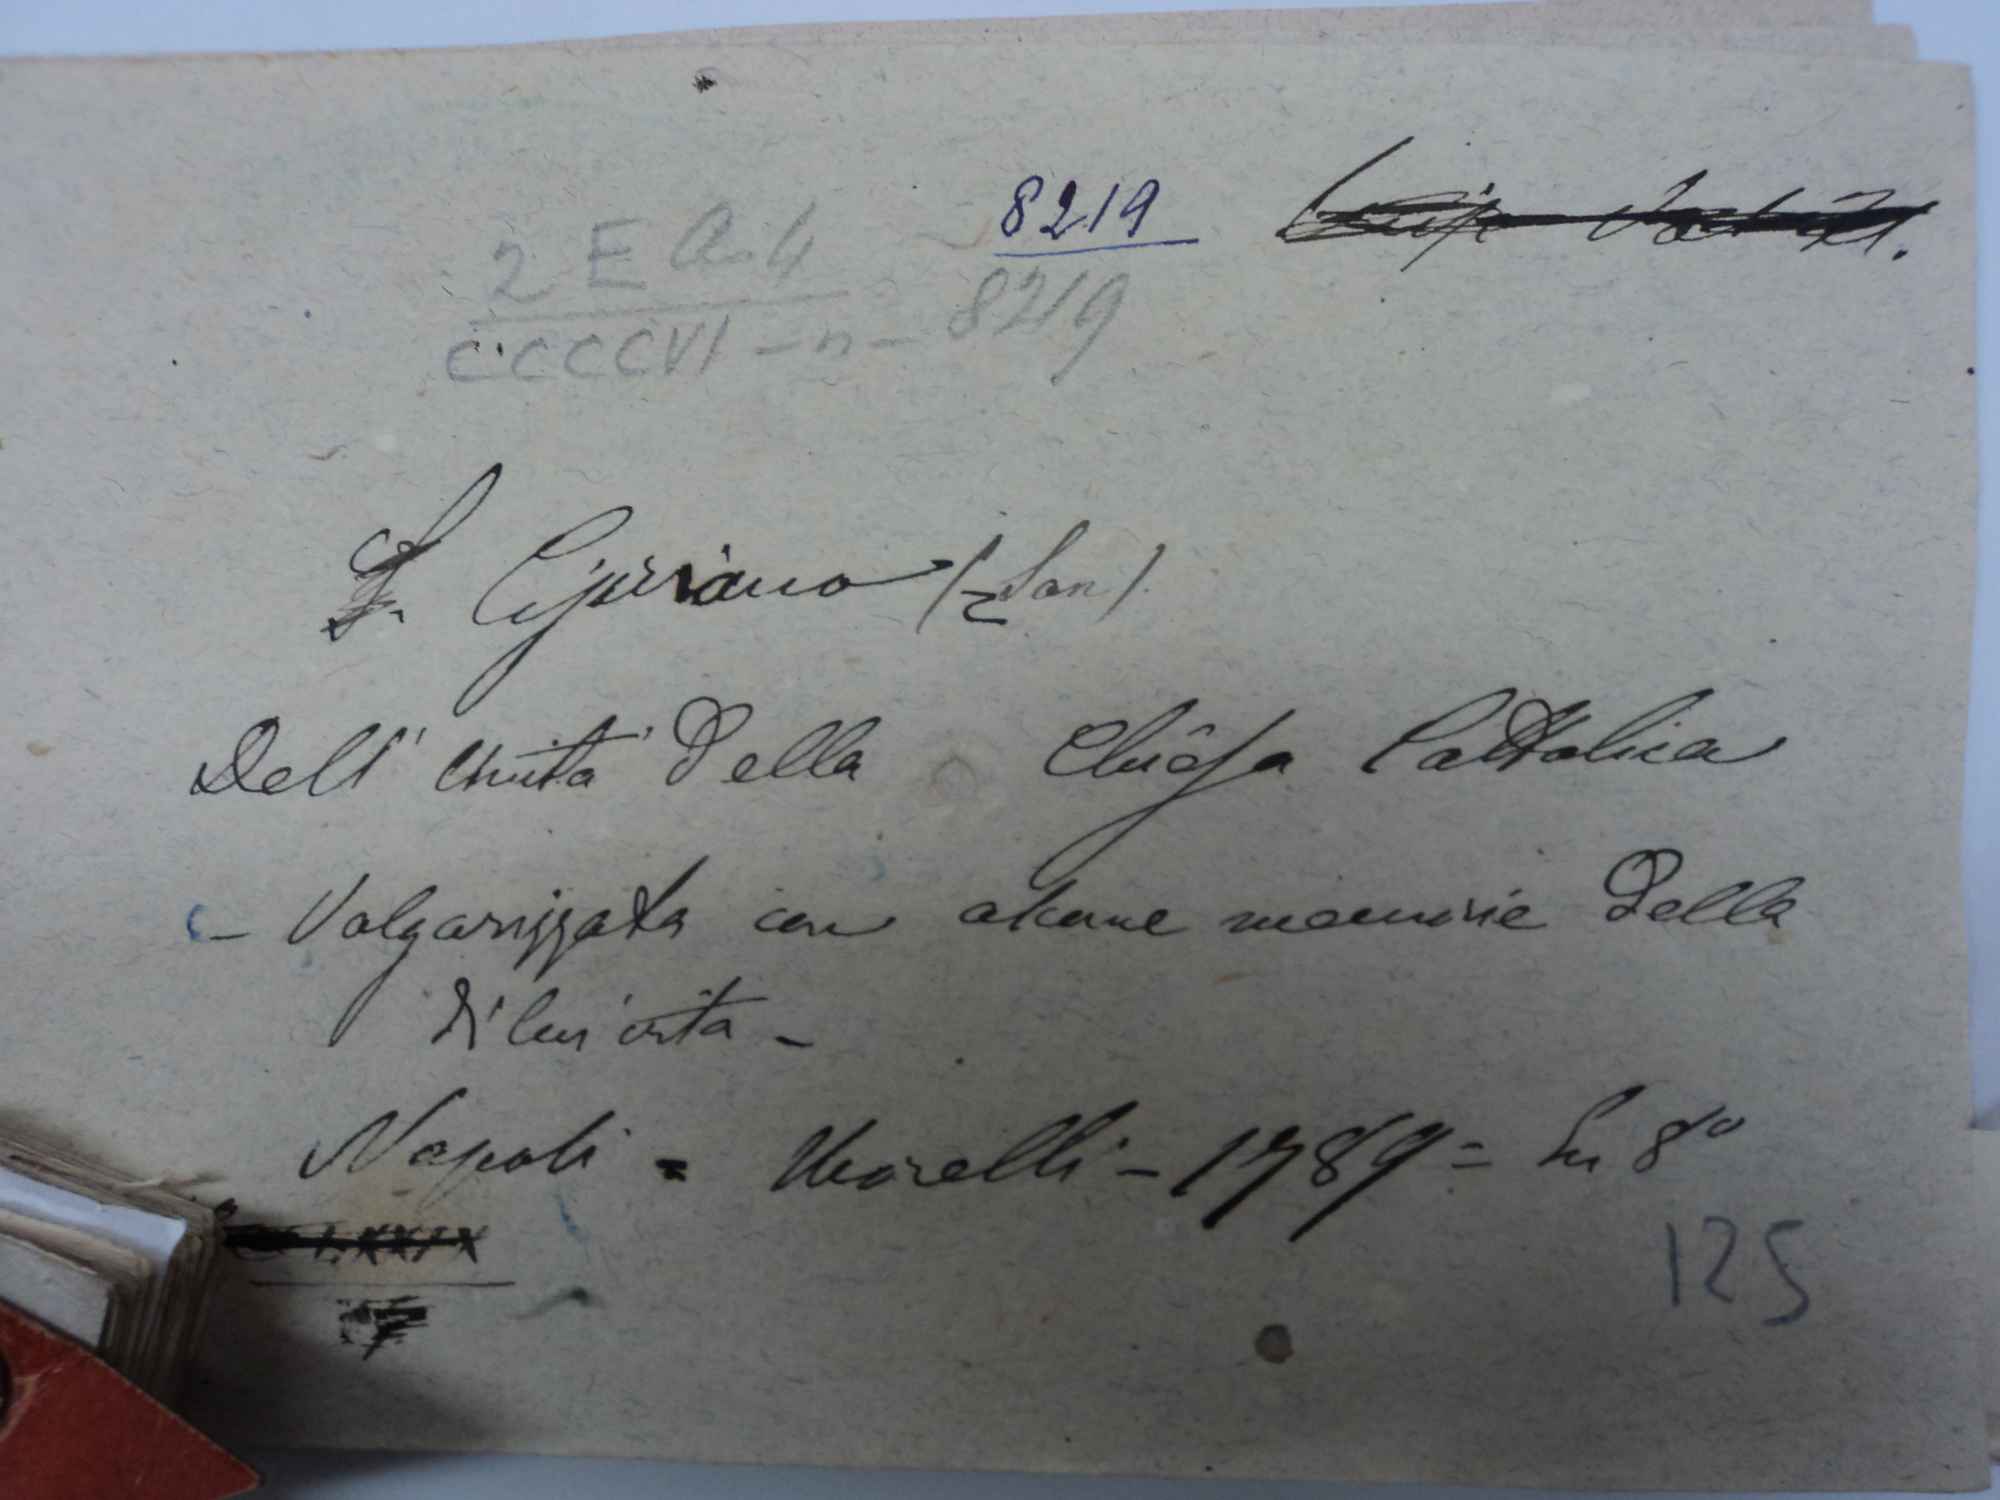 8219
2 E A. 4
CCCCVI - n - 8219
S. Cipriano (San)
Dell' Unità Della Chiesa Cattolica
- Volgarizzata con alcune memorie Della
di lui vita -
Napoli = Morelli - 1789 = In 8º
LXXIX
125